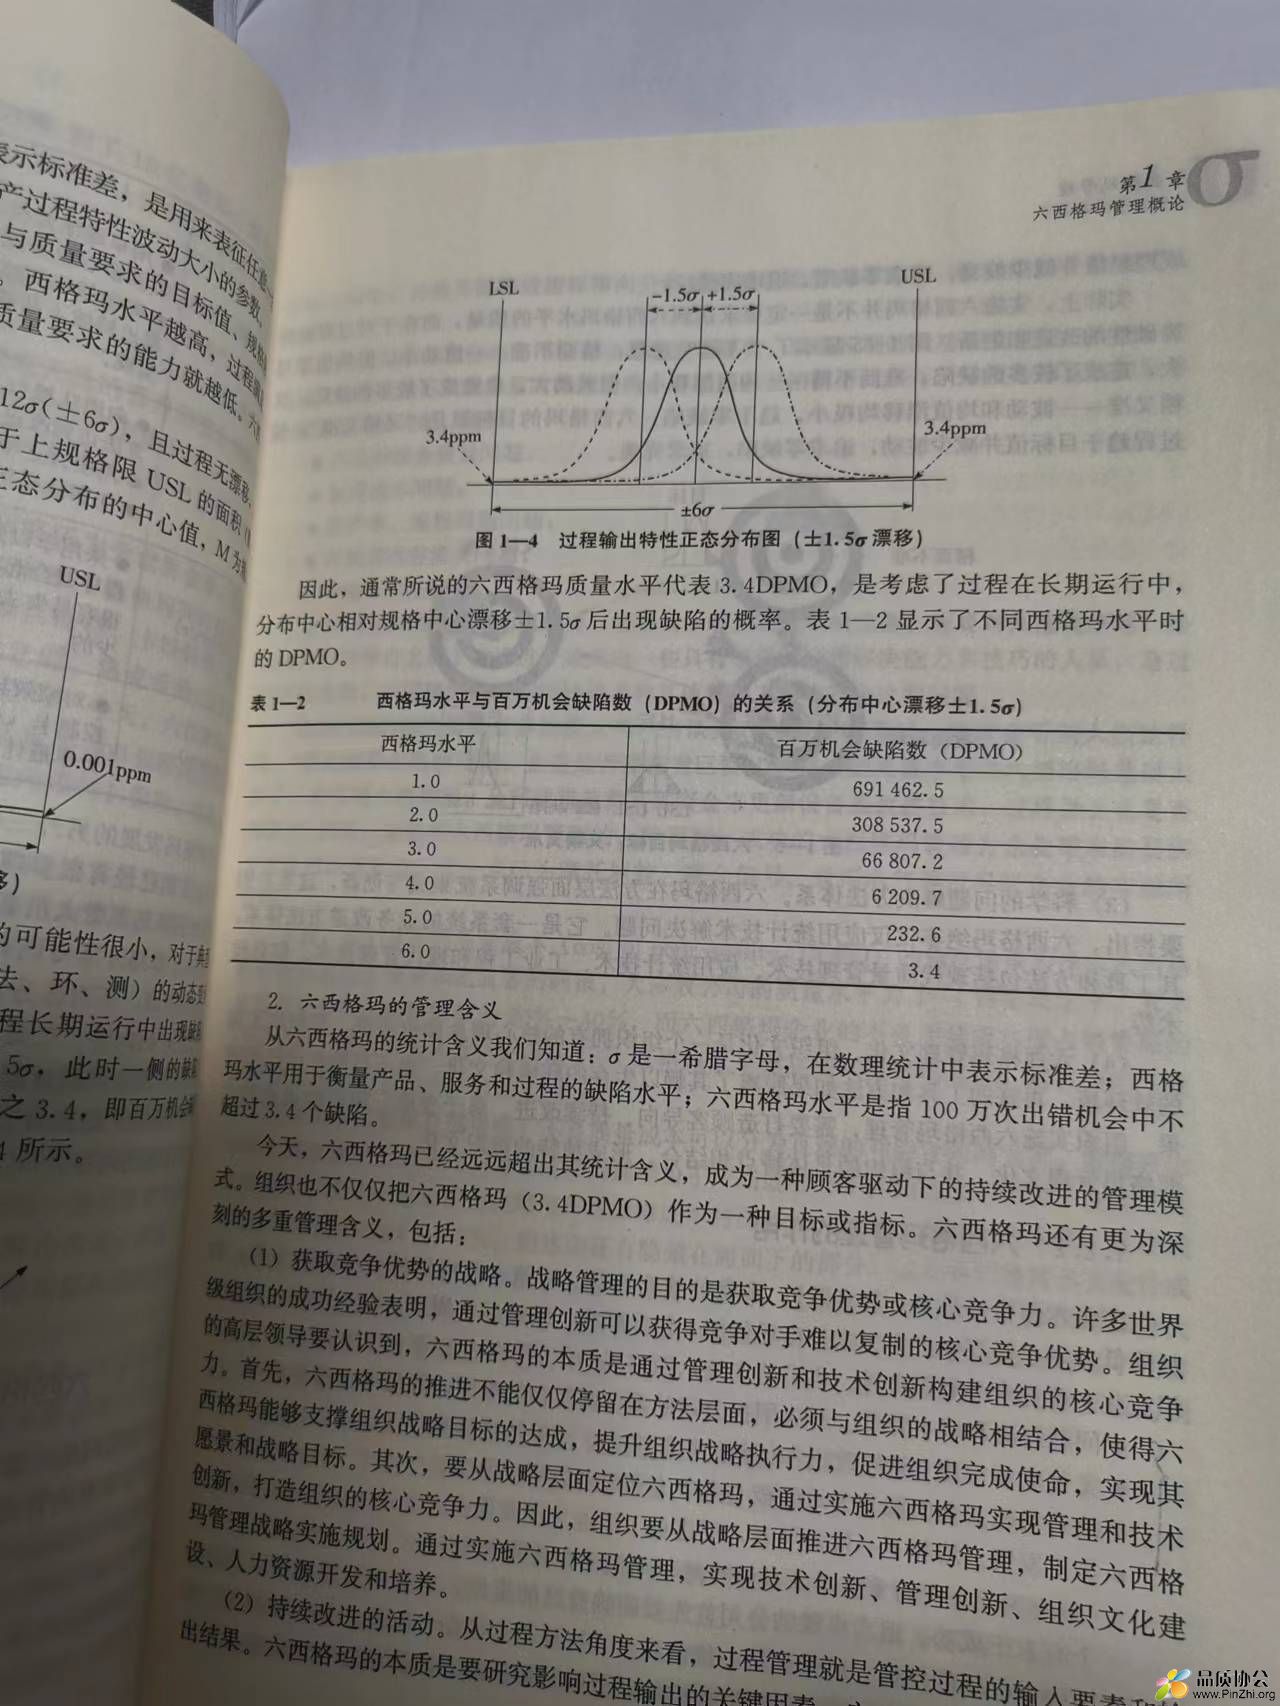 表示标准差，是用来表征任意一
产过程特性波动大小的参数。
与质量要求的目标值、规格
。西格玛水平越高，过程
质量要求的能力就越低。六
12σ(±6σ)，且过程无漂移，
于上规格限 USL 的面积
正态分布的中心值，M 为
USL
0.001ppm
移）
的可能性很小，对于典型
法、环、测）的动态变
程长期运行中出现缺陷
5σ，此时一侧的缺陷
之 3.4，即百万机会缺
4 所示。
第1章
六西格玛管理概论
σ
LSL
-1.5σ
+1.5σ
USL
3.4ppm
3.4ppm
±6σ
图 1—4 过程输出特性正态分布图（士1.5σ漂移）
因此，通常所说的六西格玛质量水平代表 3.4DPMO，是考虑了过程在长期运行中，
分布中心相对规格中心漂移士1.5σ后出现缺陷的概率。表 1—2 显示了不同西格玛水平时
的 DPMO。
表 1—2 西格玛水平与百万机会缺陷数（DPMO）的关系（分布中心漂移士1.5σ）
西格玛水平 百万机会缺陷数（DPMO）
1.0 691 462.5
2.0 308 537.5
3.0 66 807.2
4.0 6 209.7
5.0 232.6
6.0 3.4
2. 六西格玛的管理含义
从六西格玛的统计含义我们知道：σ是一希腊字母，在数理统计中表示标准差；西格
玛水平用于衡量产品、服务和过程的缺陷水平；六西格玛水平是指 100 万次出错机会中不
超过 3.4 个缺陷。
今天，六西格玛已经远远超出其统计含义，成为一种顾客驱动下的持续改进的管理模
式。组织也不仅仅把六西格玛（3.4DPMO）作为一种目标或指标。六西格玛还有更为深
刻的多重管理含义，包括：
(1) 获取竞争优势的战略。战略管理的目的是获取竞争优势或核心竞争力。许多世界
级组织的成功经验表明，通过管理创新可以获得竞争对手难以复制的核心竞争优势。组织
的高层领导要认识到，六西格玛的本质是通过管理创新和技术创新构建组织的核心竞争
力。首先，六西格玛的推进不能仅仅停留在方法层面，必须与组织的战略相结合，使得六
西格玛能够支撑组织战略目标的达成，提升组织战略执行力，促进组织完成使命，实现其
愿景和战略目标。其次，要从战略层面定位六西格玛，通过实施六西格玛实现管理和技术
创新，打造组织的核心竞争力。因此，组织要从战略层面推进六西格玛管理，制定六西格
玛管理战略实施规划。通过实施六西格玛管理，实现技术创新、管理创新、组织文化建
设、人力资源开发和培养。
(2) 持续改进的活动。从过程方法角度来看，过程管理就是管控过程的输入要素和
出结果。六西格玛的本质是要研究影响过程输出的关键因素
品质协公
www.PinZhi.org